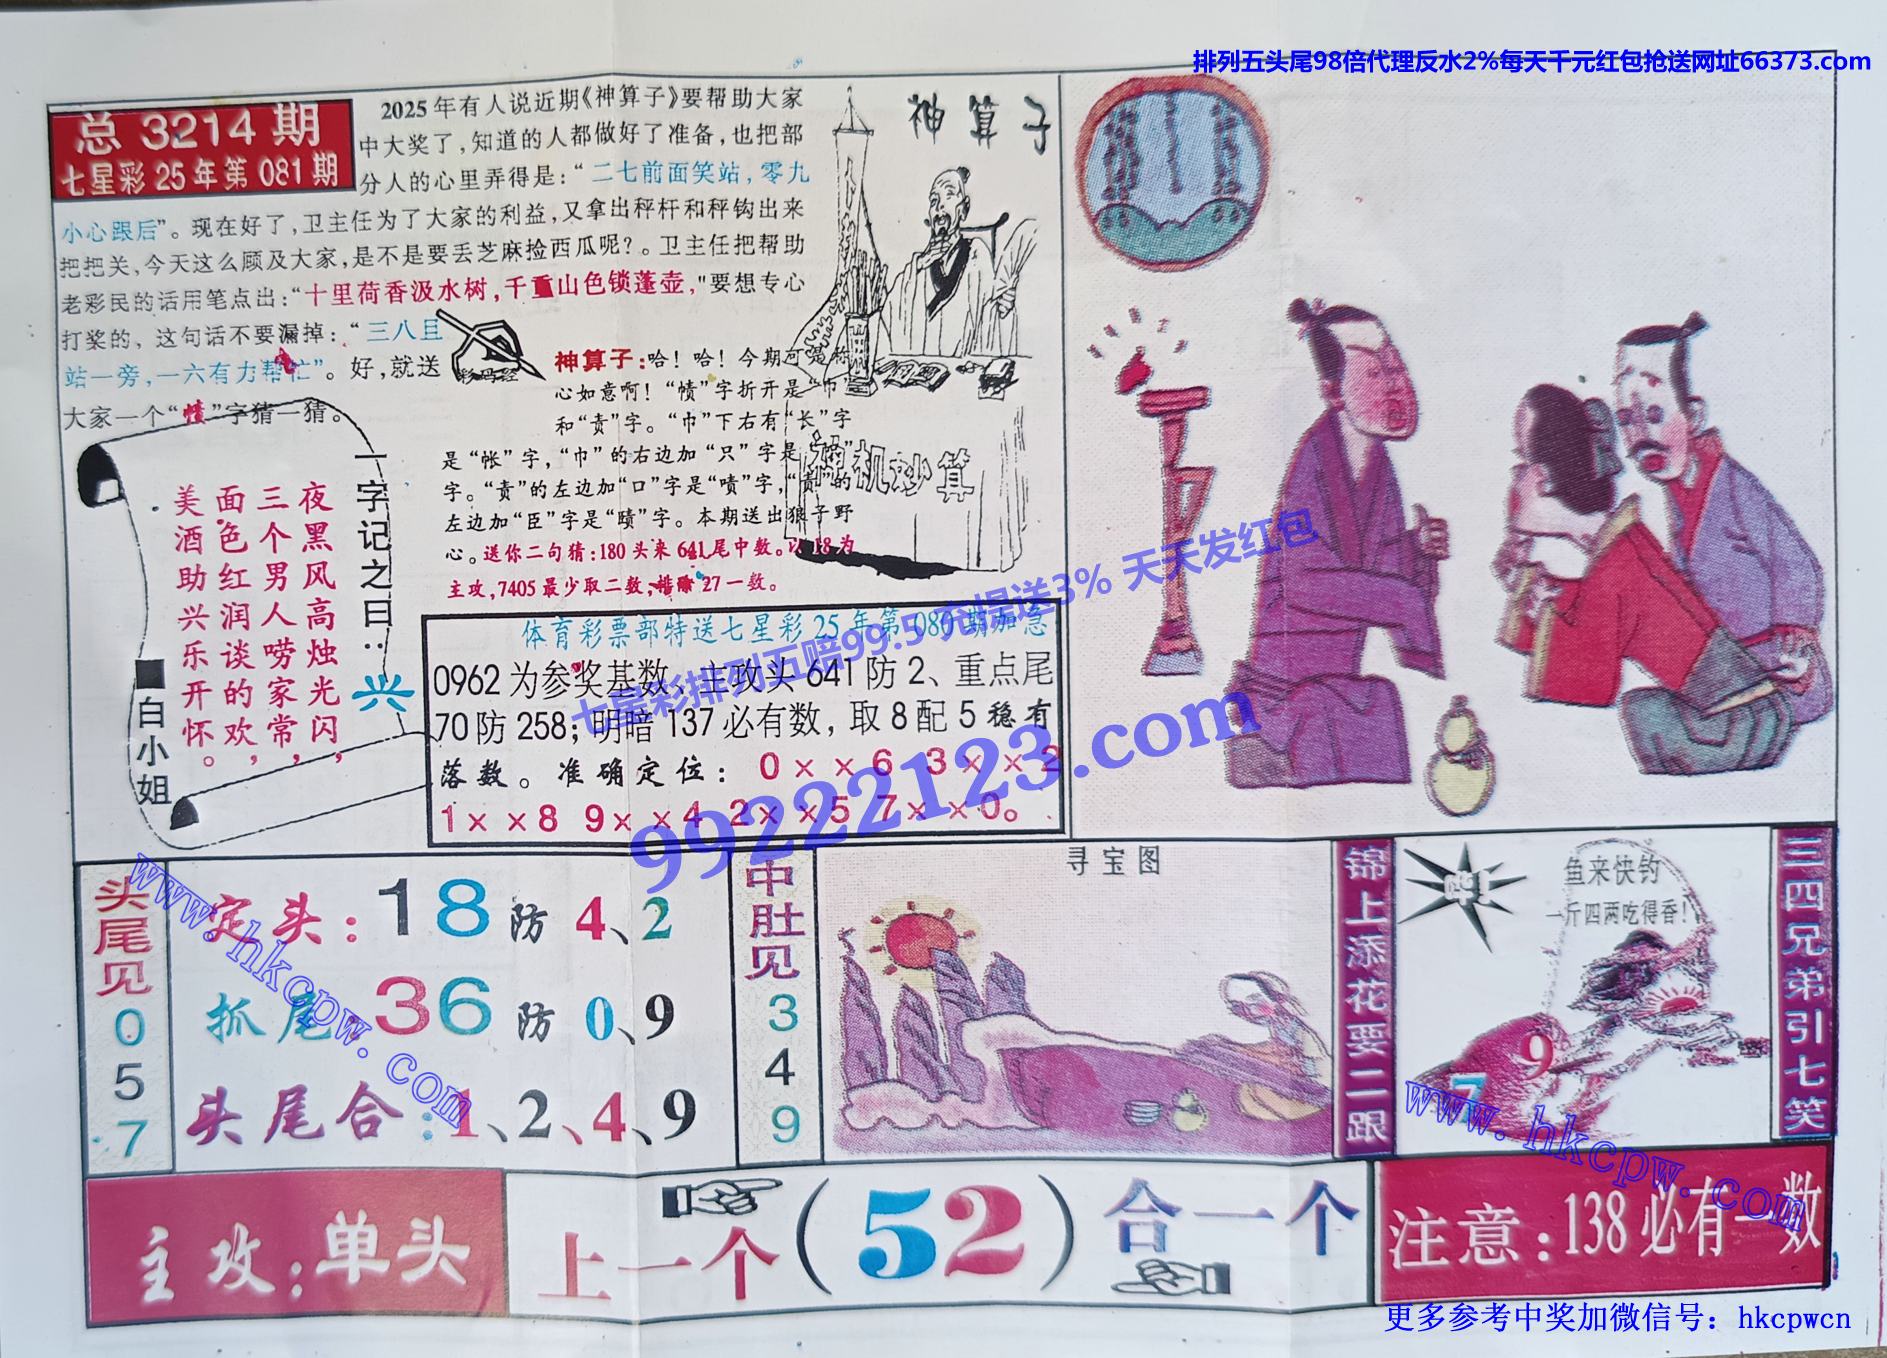 排列五头尾98倍代理反水2%每天千元红包抢送网址66373.com
总3214期
七星彩25年第081期
2025年有人说近期《神算子》要帮助大家
中大奖了，知道的人都做好了准备，也把部
分人的心里弄得是：“二七前面笑站，零九
小心跟后”。现在好了，卫主任为了大家的利益，又拿出秤杆和秤钩出来
把把关，今天这么顾及大家，是不是要丢芝麻捡西瓜呢？。卫主任把帮助
老彩民的话用笔点出：“十里荷香汲水树，千重山色锁蓬壶，"要想专心
打奖的，这句话不要漏掉：“三八且
站一旁，一六有力帮忙”。好，就送
大家一个“愤”字猜一猜。
神算子
彩马经
神算子：哈！哈！今期可是称
心如意啊！“帻”字折开是“巾”
和“责”字。“巾”下右有“长”字
是“帐”字，“巾”的右边加“只”字是
字。“责”的左边加“口”字是“啧”字，“责”的
左边加“臣”字是“赜”字。本期送出狼子野
心。送你二句猜：180头来641尾中数。以18为
主攻，7405最少取二数，排除27一数。
神机妙算
一字记之曰：兴
夜黑风高烛光闪，
三个男人唠家常，
面色红润谈的欢，
美酒助兴乐开怀。
白小姐
体育彩票部特送七星彩25年第080期加急
0962为参奖基数、主攻头641防2、重点尾
70防258；明暗137必有数，取8配5稳有
落数。准确定位：0××6 3××2
1××8 9××4 2××5 7××0。
七星彩排列五赔99.5 充提送3% 天天发红包
99222123.com
头尾见057
定头：18防4、2
抓尾：36防0、9
头尾合：1、2、4、9
中肚见349
寻宝图
锦上添花要二跟
鱼来快钓
一斤四两吃得香！
9
7
三四兄弟引七笑
www.hkcpw.com
www.hkcpw.com
主攻：单头
上一个（52）合一个
注意：138必有一数
更多参考中奖加微信号：hkcpwcn